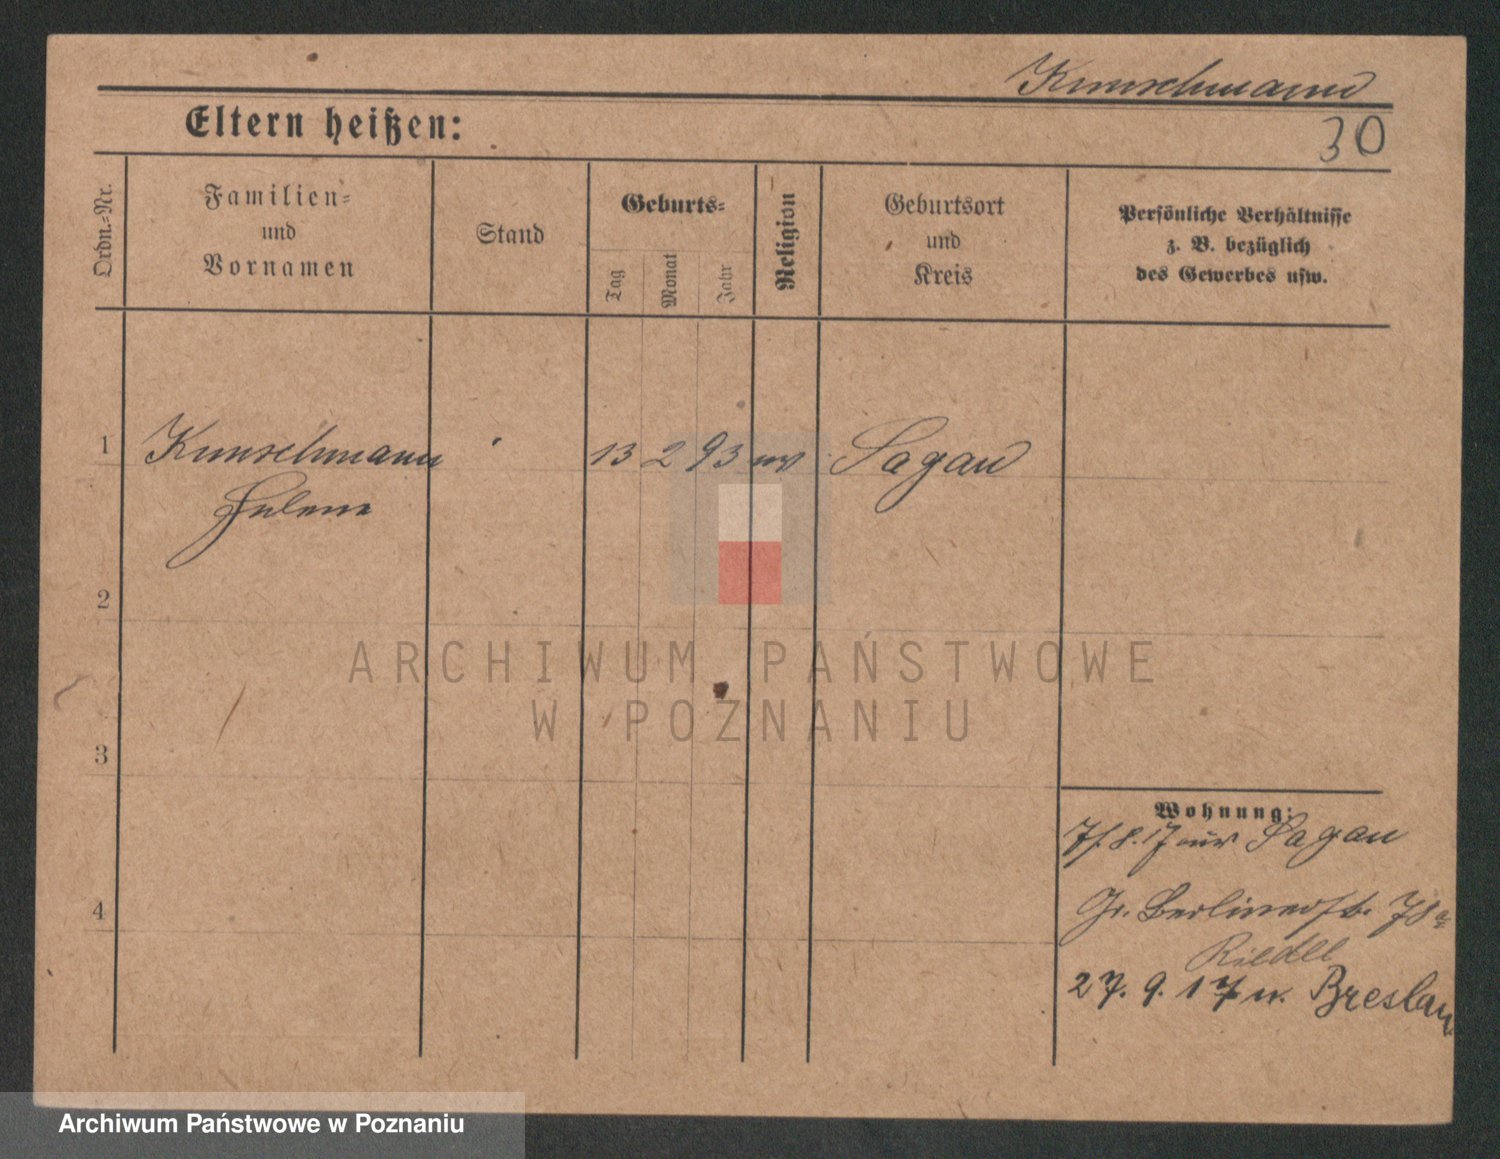 Kunschmann
Eltern heißen:
30
Ordn.-Nr.
Familien-
und
Vornamen
Stand
Geburts-
Tag
Monat
Jahr
Religion
Geburtsort
und
Kreis
Persönliche Verhältnisse
z. B. bezüglich
des Gewerbes usw.
1
Kunschmann
13 2 93 ev Sagan
Helene
2
ARCHIWUM PAŃSTWOWE
W POZNANIU
3
Wohnung:
7/8.17 aus Sagan
4
Gr. Berlinerstr. 78a
Riedel
27. 9. 17 n. Breslau
Archiwum Państwowe w Poznaniu